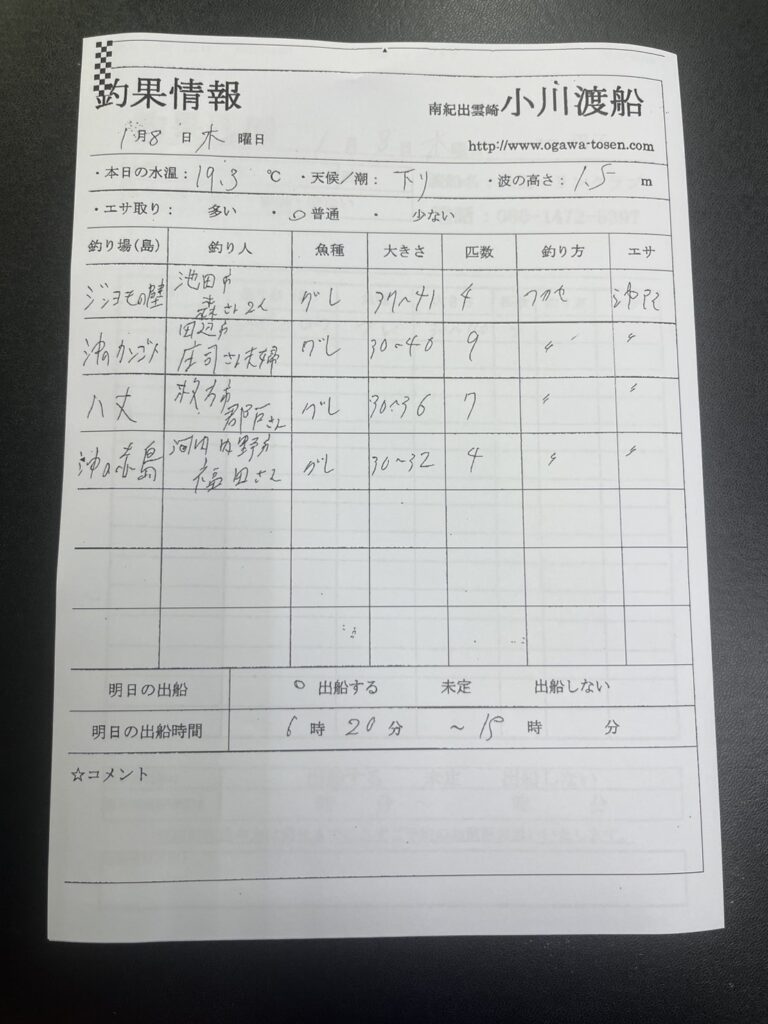 釣果情報
南紀出雲崎 小川渡船
1月8日 木 曜日
http://www.ogawa-tosen.com
・本日の水温：19.3 ℃ ・天候／潮：下り ・波の高さ：1.5 m
・エサ取り： 多い ・○普通 ・ 少ない
釣り場(島) 釣り人 魚種 大きさ 匹数 釣り方 エサ
池田市
森さん2人 グレ 37～41 4 フカセ
田辺市
沖のカンゴメ 庄司さん夫婦 グレ 30～40 9 〃 〃
枚方市
八丈 郡戸さん グレ 30～36 7 〃 〃
沖の赤島 福田さん グレ 30～32 4 〃 〃
明日の出船 ○ 出船する 未定 出船しない
明日の出船時間 6 時 20 分 ～15 時 分
☆コメント